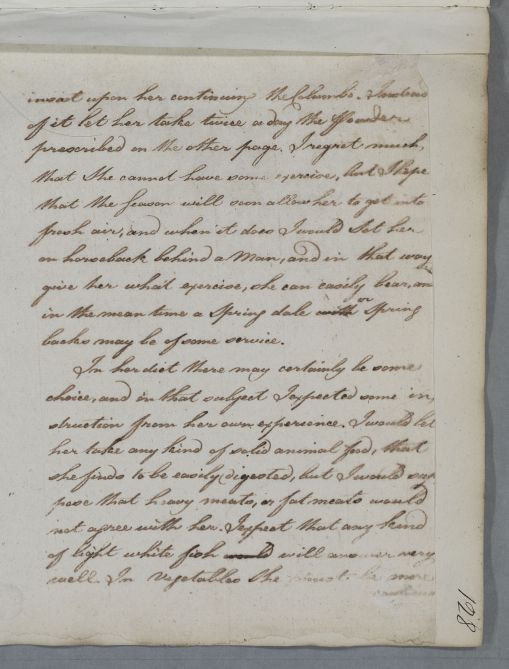 insist upon her continuing the Columbo. Instead
of it let her take twice a day the Powder
prescribed on the other page. I regret much,
that She cannot have some exercise, but I hope
that the Season will soon allow her to get into
fresh air, and when it does I would Set her
on horseback behind a Man, and in that way
give her what exercise, she can easily bear, and
in the mean time a Spring dale with or Spring
backs may be of some service.
In her diet there may certainly be some
choice, and in that subject I expected some in,
struction from her own experience. I would let
her take any kind of solid animal food, that
she finds to be easily digested, but I would sup
pose that heavy meats, or fat meats would
not agree with her. I expect that any kind
of light white fish would will answer very
well. In vegetables She must be more
cautious
128